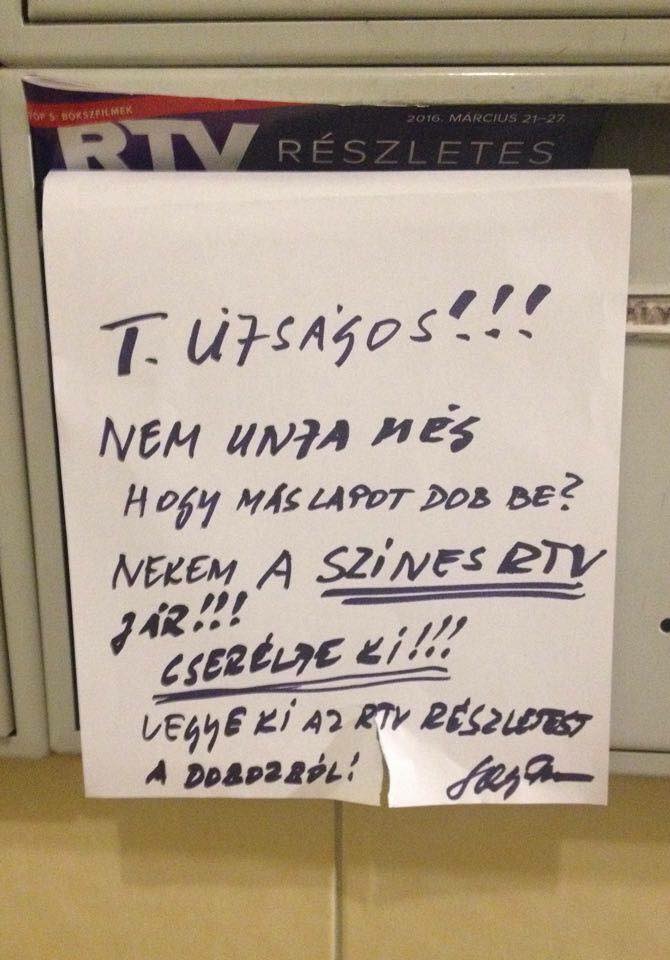 TOP 5: BOKSZFILMEK
2016. MÁRCIUS 21–27.
RTV RÉSZLETES
T. ÚJSÁGOS!!!
NEM UNJA MÉG
HOGY MÁS LAPOT DOB BE?
NEKEM A SZÍNES RTV
JÁR!!!
CSERÉLJE KI!!!
VEGYE KI AZ RTV RÉSZLETEST
A DOBOZBÓL!